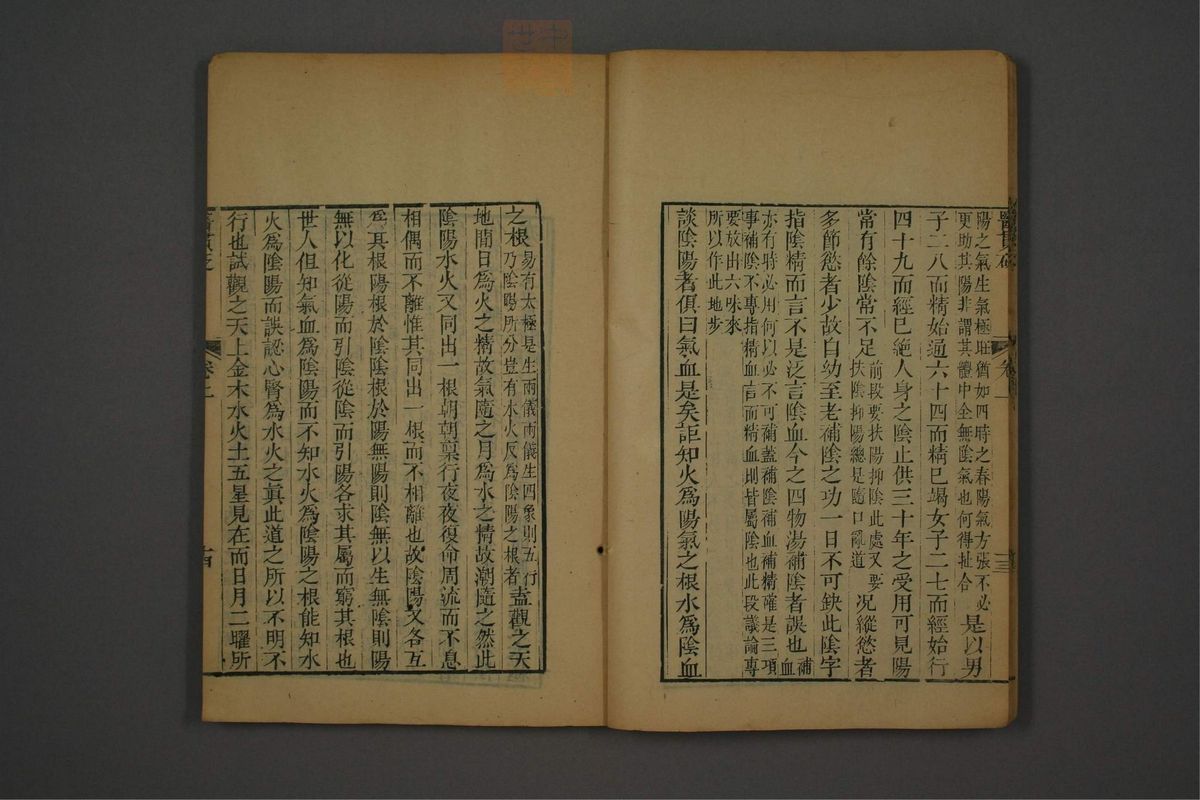 陽之氣生氣極旺猶如四時之春陽氣方張不必
更助其陽非謂其體中全無陰氣也何得扯合
是以男
子二八而精始通六十四而精已竭女子二七而經始行
四十九而經已絕人身之陰止供三十年之受用可見陽
常有餘陰常不足
前段要扶陽抑陰此處又要
扶陰抑陽總是隨口亂道
況縱慾者
多節慾者少故自幼至老補陰之功一日不可缺此陰字
指陰精而言不是泛言陰血今之四物湯補陰者誤也
補
血
亦有時必用何以必不可補蓋補陰補血補精確是三項
事補陰不專指精血言而精血則皆屬陰也此段議論專
要放出六味來
所以作此地步
談陰陽者俱曰氣血是矣詎知火為陽氣之根水為陰血
之根
易有太極是生兩儀兩儀生四象則五行
乃陰陽所分豈有水火反為陰陽之根者
盍觀之天
地間日為火之精故氣隨之月為水之精故潮隨之然此
陰陽水火又同出一根朝朝稟行夜夜復命周流而不息
相偶而不離惟其同出一根而不相離也故陰陽又各互
為其根陽根於陰陰根於陽無陽則陰無以生無陰則陽
無以化從陽而引陰從陰而引陽各求其屬而窮其根也
世人但知氣血為陰陽而不知水火為陰陽之根能知水
火為陰陽而誤認心腎為水火之真此道之所以不明不
行也試觀之天上金木水火土五星見在而日月二曜所
醫貫砭
卷上